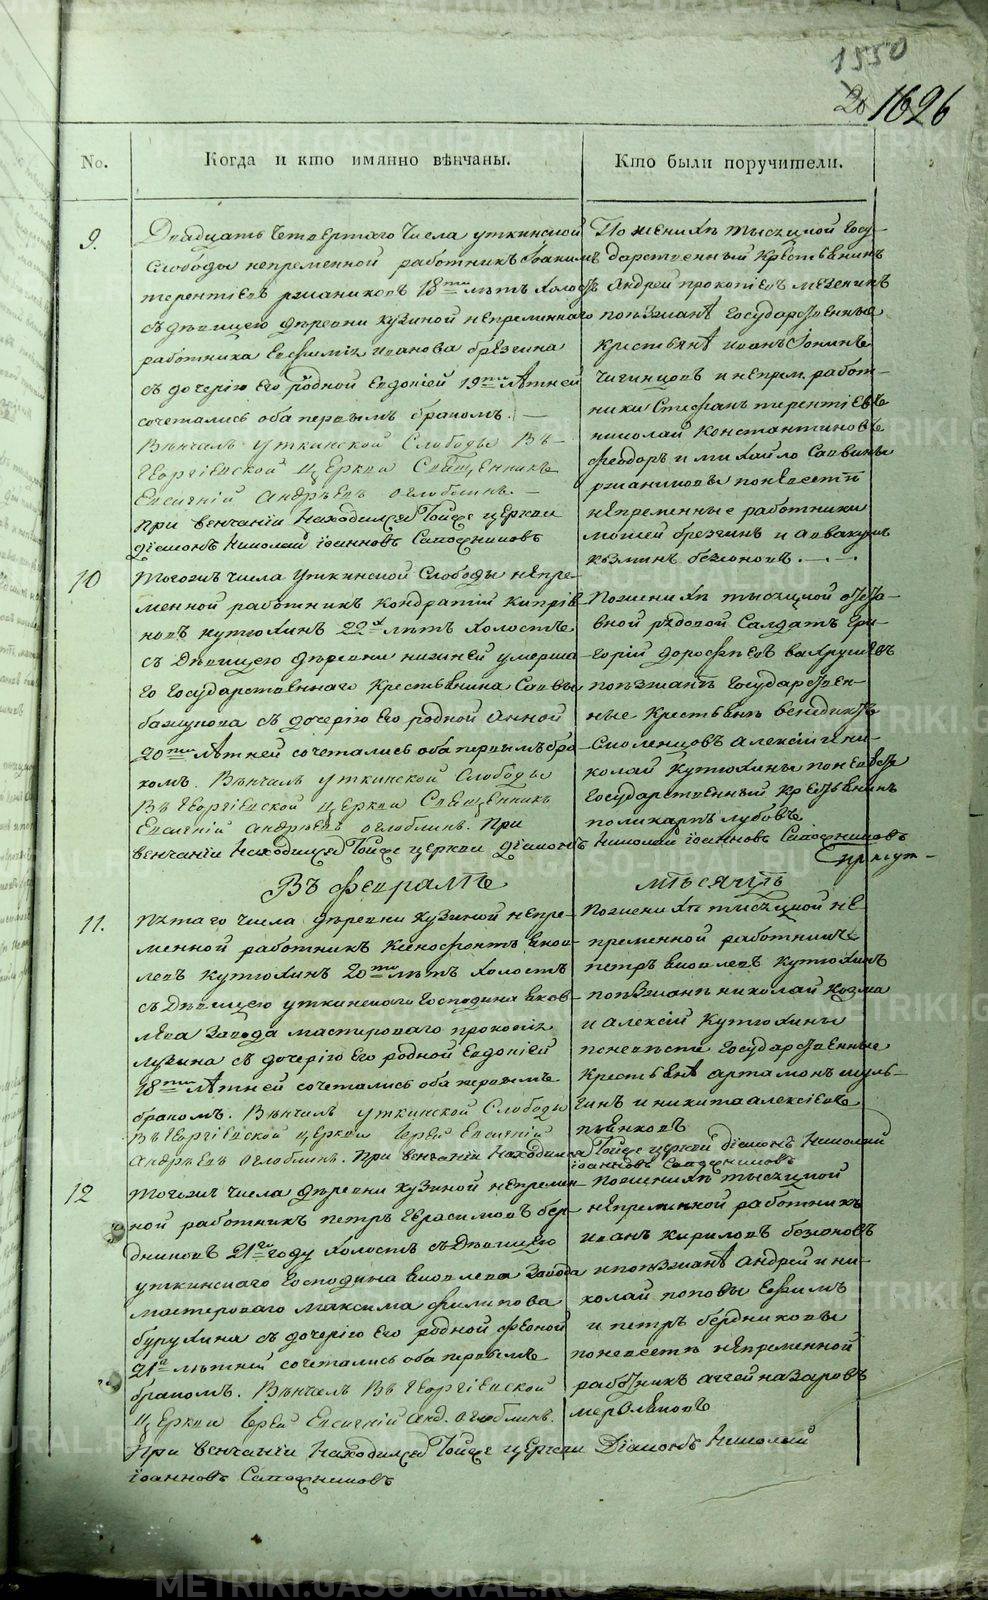 1550
20 1626
No.
Когда и кто имянно вѣнчаны.
Кто были поручители.
9.
Двадцать четвертаго числа уткинской
слободы непременной работникъ Іоакимъ
терентіевъ ржаниковъ 18ти лѣтъ холостъ
съ дѣвицею деревни кузиной непременнаго
работника Евфимія иванова брезгина
съ дочерію его родной Евдокіей 19ти лѣтней
сочетались оба первымъ бракомъ. —
Вѣнчалъ уткинской Слободы Въ-
Георгіевской церкви Священникъ
Евгеній андрѣевъ оглоблинъ. —
При венчаніи Находился Тойже церкви
Діаконъ Николай іоанновъ Сапожниковъ
По женихѣ тысяцкой госу-
дарственный крестьянинъ
Андрей прокопіевъ мезенинъ
поѣзжанѣ государственные
крестьянѣ иванъ
чигинцовъ и непрем. работ-
ники Стефанъ терентіевъ
николай константиновъ
феодоръ и михайло Саввины
ржаниковы по невестѣ
непременные работники
моисей брезгинъ и аввакумъ
козминъ безоновъ. —
10
Тогожъ числа уткинской Слободы непре-
менной работникъ кондратій кипріа-
новъ кутюхинъ 20 лѣтъ холостъ
съ дѣвицею деревни нижней умерша-
го государственнаго крестьянина Саввы
бажукова съ дочерію его родной анной
20ти лѣтней сочетались оба первымъ бра-
комъ. Вѣнчалъ уткинской Слободы
Въ Георгіевской церкви Священникъ
Евгеній андрѣевъ оглоблинъ. При
венчаніи Находился Тойже церкви Діаконъ Николай іоанновъ Сапожниковъ
По женихѣ тысяцкой
рядовой Салдатъ гри-
горій дорофѣевъ вахрушевъ
поѣзжанѣ государствен-
ные крестьянѣ венедиктъ
Смоленцовъ алексій и ни-
колай кутюхины по невестѣ
государственный крестьянинъ
поликарпъ лубовъ
Въ февралѣ
мѣсяцѣ
11.
Пятаго числа деревни кузиной непре-
менной работникъ ксенофонтъ яков-
левъ кутюхинъ 20ти лѣтъ холостъ
съ дѣвицею уткинскаго господина яков-
лева завода мастероваго прокопія
лузина съ дочерію его родной Евдокіей
18ти лѣтней сочетались оба первымъ
бракомъ. Вѣнчалъ уткинской Слободы
Въ Георгіевской церкви Іерей Евгеній
андрѣевъ оглоблинъ. При венчаніи Находился Тойже церкви діаконъ Николай
іоанновъ Сапожниковъ
По женихѣ тысяцкой не-
пременной работникъ
петръ яковлевъ кутюхинъ
поѣзжанѣ николай козма
и алексій кутюхины
по невѣсте государственные
крестьянѣ артамонъ
и никита алексіевъ
пьянковъ
12
Тогожъ числа деревни кузиной непремен-
ной работникъ петръ герасимовъ бер-
дниковъ 21го году холостъ съ дѣвицею
уткинскаго господина яковлева завода
мастероваго максима филипова
бурухина съ дочерію его родной феоной
21а лѣтней сочетались оба первымъ
бракомъ. Вѣнчалъ Въ Георгіевской
церкви Іерей Евгеній анд. оглоблинъ.
При венчаніи Находился Тойже церкви Діаконъ Николай
іоанновъ Сапожниковъ
По женихѣ тысяцкой
непременной работникъ
иванъ кириловъ безоновъ
и поѣзжанѣ андрей и ни-
колай поповы Ефимъ
и петръ бердниковы
по невестѣ непременной
работникъ аггей назаровъ